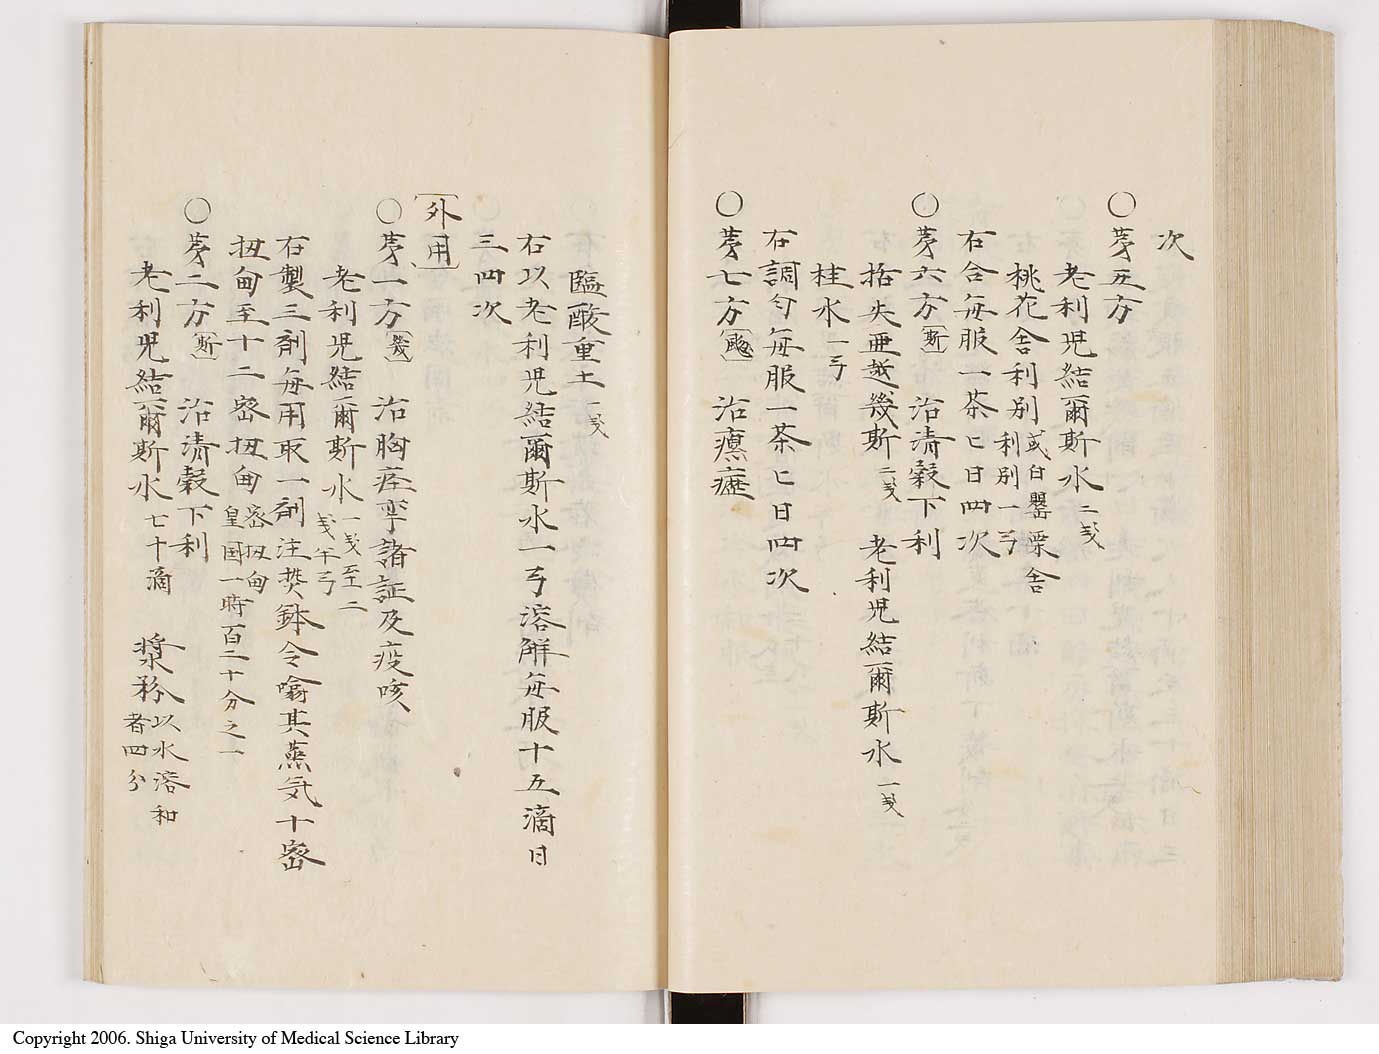 次
○苐五方
老利児結爾斯水 二戔
桃花舎利別 或白罌栗舎利別 一弓
右合毎服一茶匕日四次
○苐六方 斯 治清穀下利
括失亜越幾斯 二戔 老利児結爾斯水 一戔
桂水 一弓
右調匀毎服一茶匕日四次
○苐七方 治瘭疽
塩酸重土 一戔
右以老利児結爾斯水一弓溶解毎服十五滴日
三四次
外用
○苐一方 幾 治胸痙挛諸証及疫咳
老利児結爾斯水 一戔至二戔半弓
右製三剤毎用取一剤注奘鉢令噏其蒸気十密
扭甸至十二密扭甸 密扭甸皇国一時百二十分之一
○苐二方 斯 治清穀下利
老利児結爾斯水 七十滴 漿粉 以水溶和者四分
Copyright 2006. Shiga University of Medical Science Library